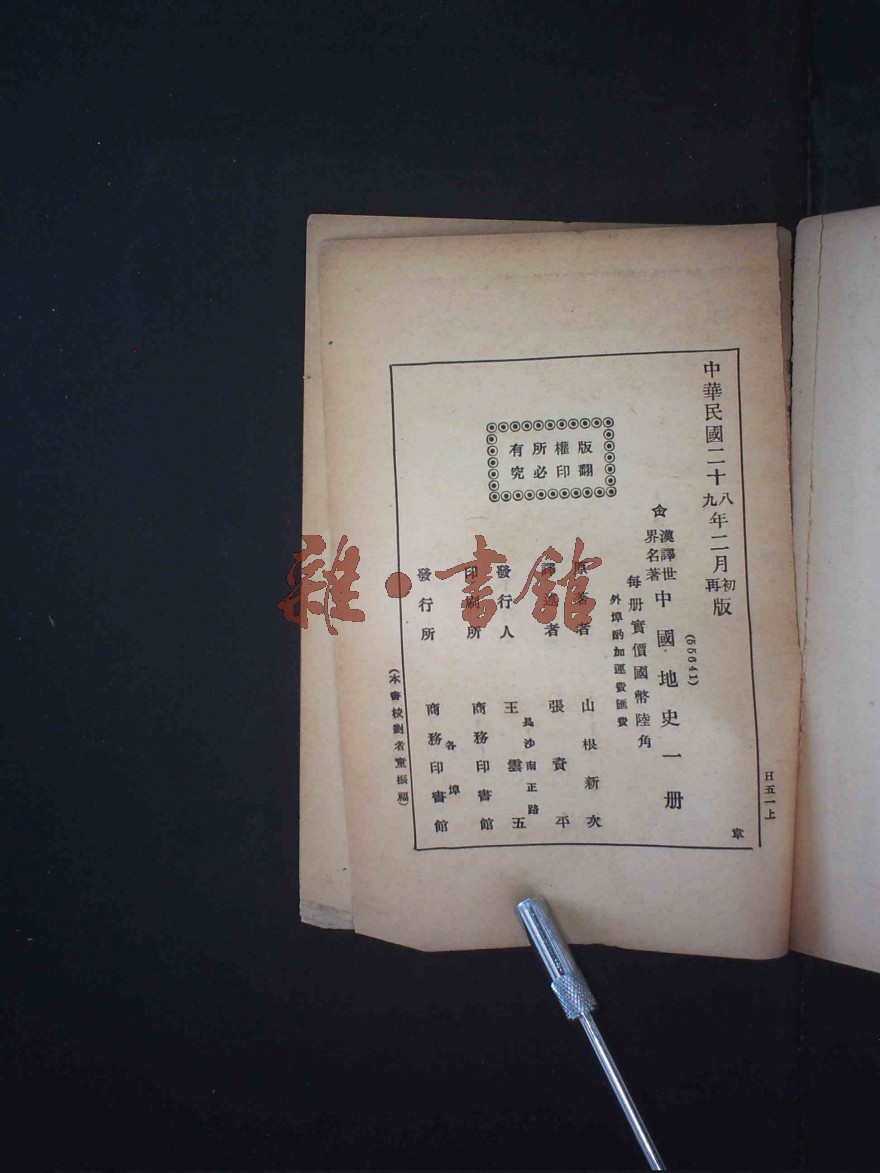 中華民國二十八年二月初版
九 再
(55641)
㊎漢譯世界名著 中國地史一册
每册實價國幣陸角
外埠酌加運費匯費
版權所有
翻印必究
原著者 山根新次
譯述者 張資平
發行人 王雲五
長沙南正路
印刷所 商務印書館
發行所 各埠商務印書館
(本書校對者童振福)
日五一上
章
雜·書館